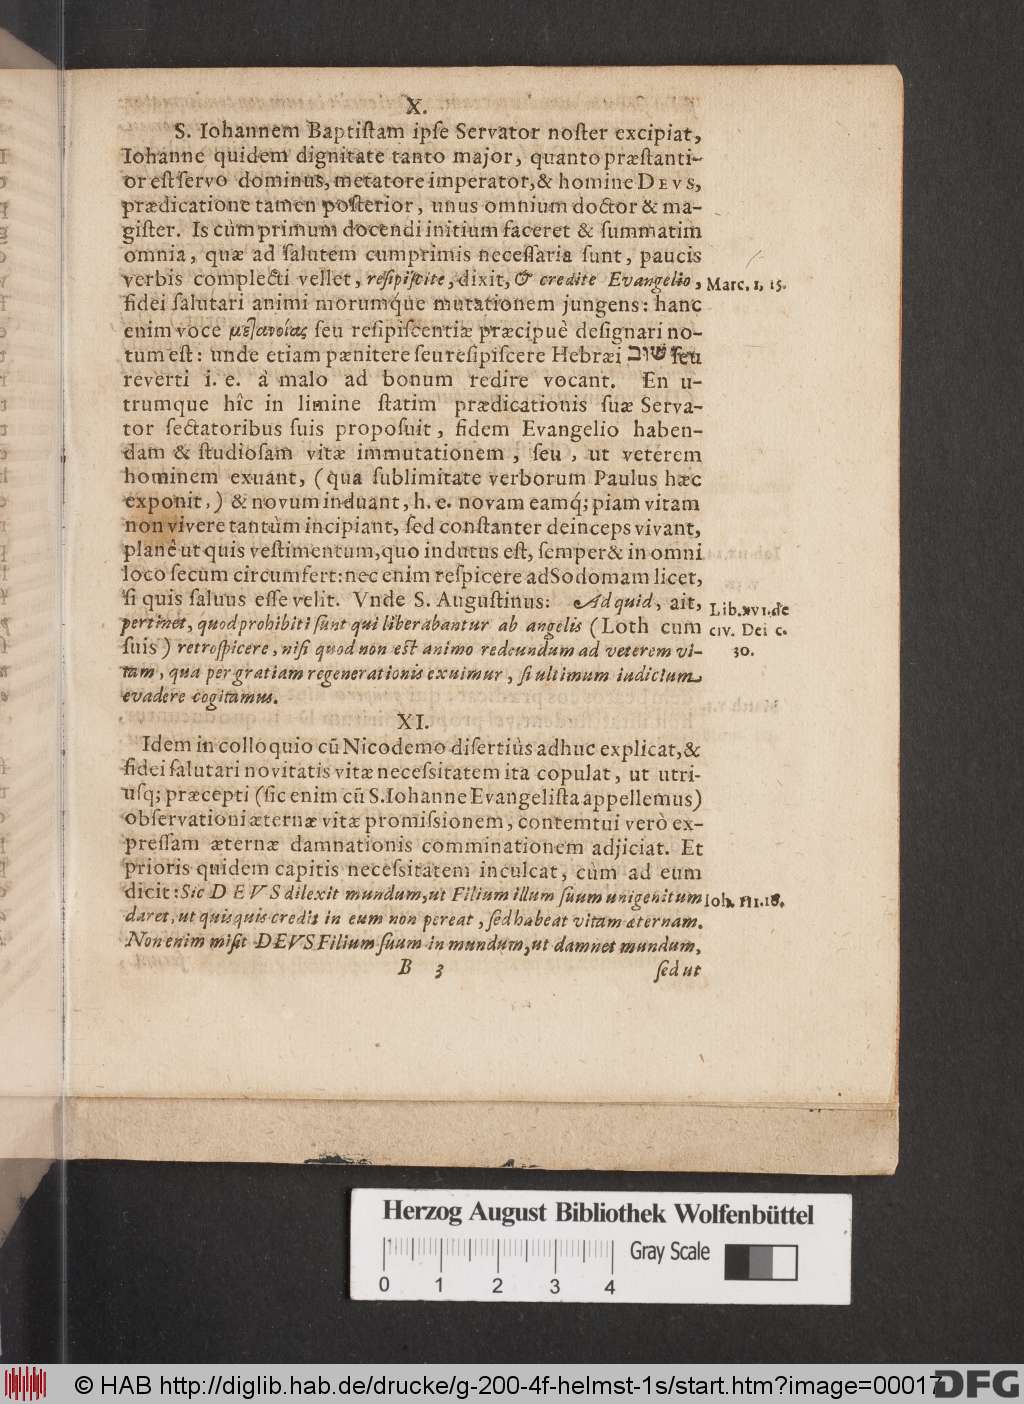 X.
S. Iohannem Baptiſtam ipſe Servator noſter excipiat,
Iohanne quidem dignitate tanto major, quanto præſtanti-
or eſt ſervo dominus, metatore imperator, & homine DEVS,
prædicatione tamen poſterior, unus omnium doctor & ma-
giſter. Is cùm primum docendi initium faceret & ſummatim
omnia, quæ ad ſalutem cumprimis neceſſaria ſunt, paucis
verbis complecti vellet, reſipiſcite, dixit, & credite Evangelio,
Marc. 1, 15.
fidei ſalutari animi morumq́ue mutationem jungens: hanc
enim voce μετανοίας ſeu reſipiſcentiæ præcipuè deſignari no-
tum eſt: unde etiam pænitere ſeu reſipiſcere Hebræi שוב ſeu
reverti i. e. à malo ad bonum redire vocant. En u-
trumque hîc in limine ſtatim prædicationis ſuæ Serva-
tor ſectatoribus ſuis propoſuit, fidem Evangelio haben-
dam & ſtudioſam vitæ immutationem, ſeu, ut veterem
hominem exuant, (qua ſublimitate verborum Paulus hæc
exponit,) & novum induant, h. e. novam eamq́; piam vitam
non vivere tantùm incipiant, ſed conſtanter deinceps vivant,
planè ut quis veſtimentum, quo indutus eſt, ſemper & in omni
loco ſecum circumfert: nec enim reſpicere ad Sodomam licet,
ſi quis ſalvus eſſe velit. Vnde S. Auguſtinus: Ad quid, ait,
Lib. XVI. de
pertinet, quod prohibiti ſunt qui liberabantur ab angelis (Loth cum
civ. Dei c.
ſuis) retroſpicere, niſi quod non eſt animo redeundum ad veterem vi-
30.
tam, qua per gratiam regenerationis exuimur, ſi ultimum iudicium
evadere cogitamus.
XI.
Idem in colloquio cū Nicodemo diſertiùs adhuc explicat, &
fidei ſalutari novitatis vitæ neceſsitatem ita copulat, ut utri-
uſq; præcepti (ſic enim cū S. Iohanne Evangeliſta appellemus)
obſervationi æternæ vitæ promiſsionem, contemtui verò ex-
preſſam æternæ damnationis comminationem adjiciat. Et
prioris quidem capitis neceſsitatem inculcat, cùm ad eum
dicit: Sic DEVS dilexit mundum, ut Filium illum ſuum unigenitum
Ioh. III. 18.
daret, ut quisquis credit in eum non pereat, ſed habeat vitam æternam.
Non enim miſit DEVS Filium ſuum in mundum, ut damnet mundum,
B 3
ſed ut
Herzog August Bibliothek Wolfenbüttel
Gray Scale
0 1 2 3 4
© HAB http://diglib.hab.de/drucke/g-200-4f-helmst-1s/start.htm?image=00017
DFG